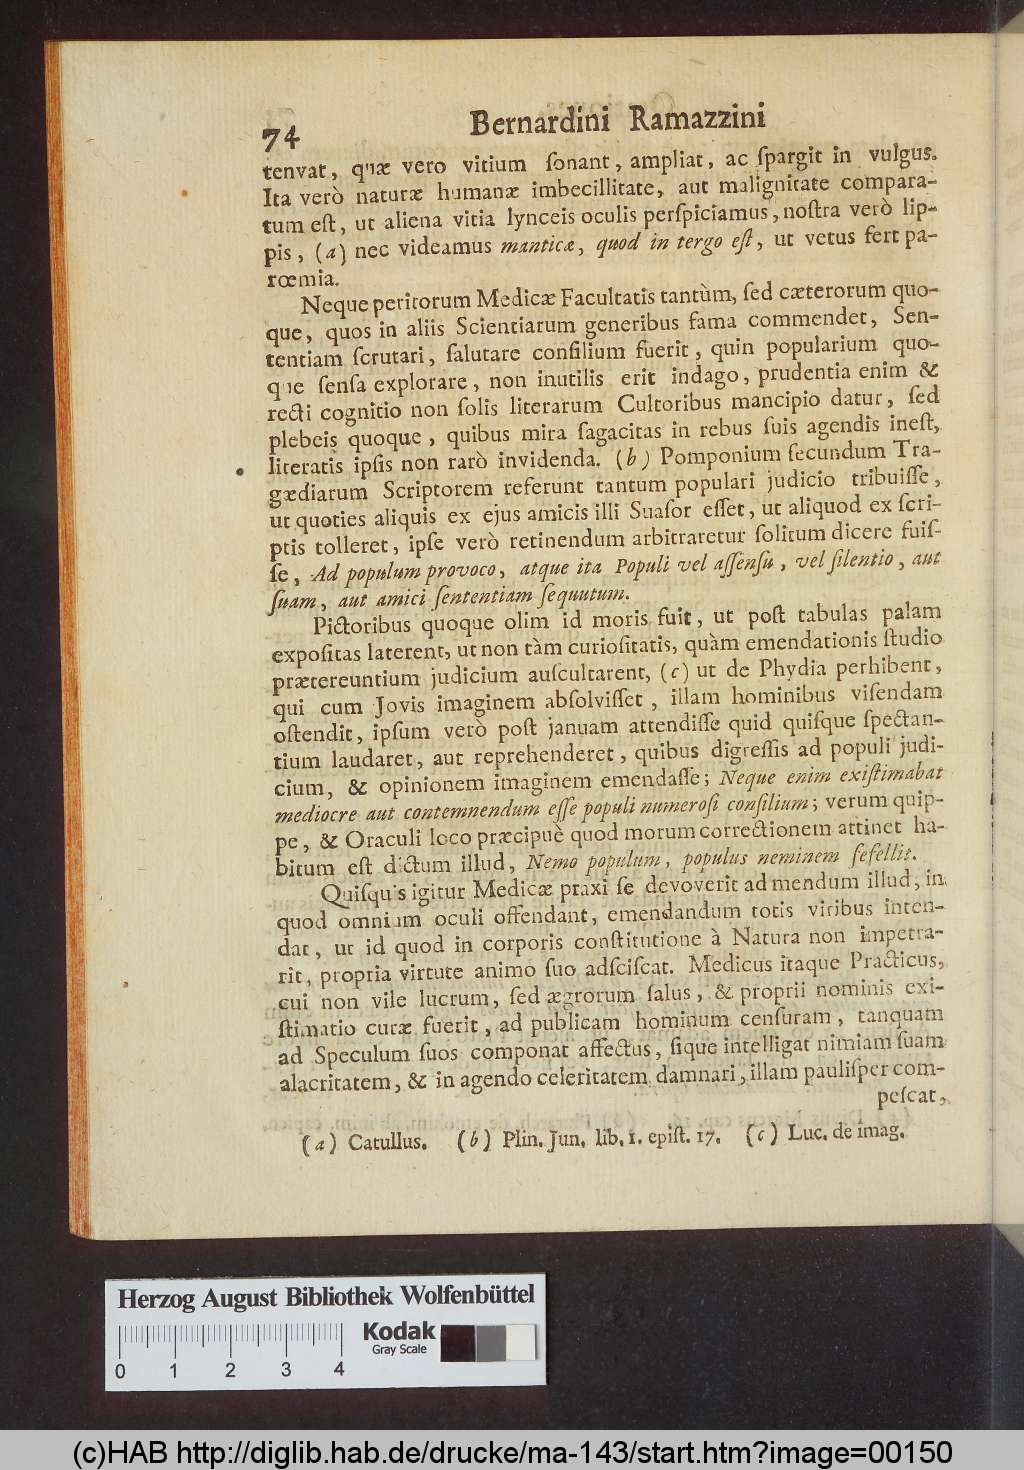 74
Bernardini Ramazzini
tenvat, quæ vero vitium ſonant, ampliat, ac ſpargit in vulgus.
Ita verò naturæ humanæ imbecillitate, aut malignitate compara-
tum eſt, ut aliena vitia lynceis oculis perſpiciamus, noſtra verò lip-
pis, (a) nec videamus manticæ, quod in tergo eſt, ut vetus fert pa-
rœmia.
Neque peritorum Medicæ Facultatis tantùm, ſed cæterorum quo-
que, quos in aliis Scientiarum generibus fama commendet, Sen-
tentiam ſcrutari, ſalutare conſilium fuerit, quin popularium quo-
que ſenſa explorare, non inutilis erit indago, prudentia enim &
recti cognitio non ſolis literarum Cultoribus mancipio datur, ſed
plebeis quoque, quibus mira ſagacitas in rebus ſuis agendis ineſt,
literatis ipſis non rarò invidenda. (b) Pomponium ſecundum Tra-
gædiarum Scriptorem referunt tantum populari judicio tribuiſſe,
ut quoties aliquis ex ejus amicis illi Suaſor eſſet, ut aliquod ex ſcri-
ptis tolleret, ipſe verò retinendum arbitraretur ſolitum dicere fuiſ-
ſe, Ad populum provoco, atque ita Populi vel aſſenſu, vel ſilentio, aut
ſuam, aut amici ſententiam ſequutum.
Pictoribus quoque olim id moris fuit, ut poſt tabulas palam
expoſitas laterent, ut non tàm curioſitatis, quàm emendationis ſtudio
prætereuntium judicium auſcultarent, (c) ut de Phydia perhibent,
qui cum Jovis imaginem abſolviſſet, illam hominibus viſendam
oſtendit, ipſum verò poſt januam attendiſſe quid quiſque ſpectan-
tium laudaret, aut reprehenderet, quibus digreſſis ad populi judi-
cium, & opinionem imaginem emendaſſe; Neque enim exiſtimabat
mediocre aut contemnendum eſſe populi numeroſi conſilium; verum quip-
pe, & Oraculi loco præcipuè quod morum correctionem attinet ha-
bitum eſt dictum illud, Nemo populum, populus neminem fefellit.
Quiſquis igitur Medicæ praxi ſe devoverit ad mendum illud, in
quod omnium oculi offendant, emendandum totis viribus inten-
dat, ut id quod in corporis conſtitutione à Natura non impetra-
rit, propria virtute animo ſuo adſciſcat. Medicus itaque Practicus,
cui non vile lucrum, ſed ægrorum ſalus, & proprii nominis exi-
ſtimatio curæ fuerit, ad publicam hominum cenſuram, tanquam
ad Speculum ſuos componat affectus, ſique intelligat nimiam ſuam
alacritatem, & in agendo celeritatem damnari, illam pauliſper com-
peſcat,
(a) Catullus. (b) Plin. Jun. lib. 1. epiſt. 17. (c) Luc. de imag.
Herzog August Bibliothek Wolfenbüttel
Kodak
Gray Scale
0 1 2 3 4
(c)HAB http://diglib.hab.de/drucke/ma-143/start.htm?image=00150